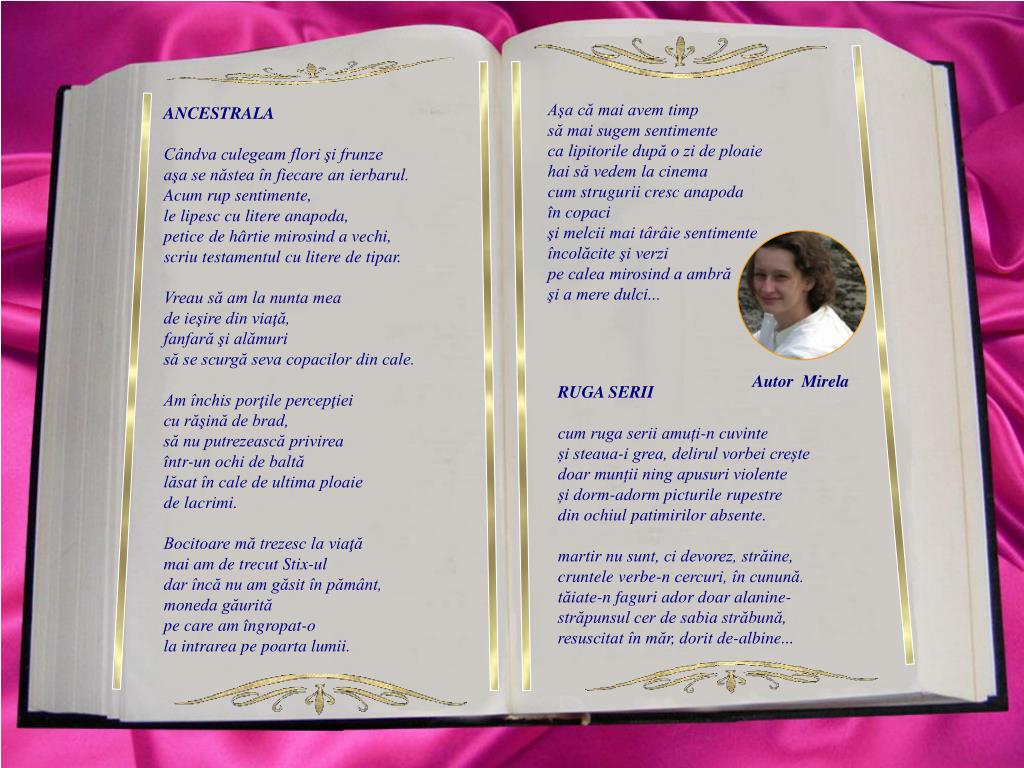 ANCESTRALA
Cândva culegeam flori şi frunze
aşa se năstea în fiecare an ierbarul.
Acum rup sentimente,
le lipesc cu litere anapoda,
petice de hârtie mirosind a vechi,
scriu testamentul cu litere de tipar.
Vreau să am la nunta mea
de ieşire din viaţă,
fanfară şi alămuri
să se scurgă seva copacilor din cale.
Am închis porţile percepţiei
cu răşină de brad,
să nu putrezească privirea
într-un ochi de baltă
lăsat în cale de ultima ploaie
de lacrimi.
Bocitoare mă trezesc la viaţă
mai am de trecut Stix-ul
dar încă nu am găsit în pământ,
moneda găurită
pe care am îngropat-o
la intrarea pe poarta lumii.
Aşa că mai avem timp
să mai sugem sentimente
ca lipitorile după o zi de ploaie
hai să vedem la cinema
cum strugurii cresc anapoda
în copaci
şi melcii mai târâie sentimente
încolăcite şi verzi
pe calea mirosind a ambră
şi a mere dulci...
Autor Mirela
RUGA SERII
cum ruga serii amuți-n cuvinte
și steaua-i grea, delirul vorbei crește
doar munții ning apusuri violente
și dorm-adorm picturile rupestre
din ochiul patimirilor absente.
martir nu sunt, ci devorez, străine,
cruntele verbe-n cercuri, în cunună.
tăiate-n faguri ador doar alanine-
străpunsul cer de sabia străbună,
resuscitat în măr, dorit de-albine...